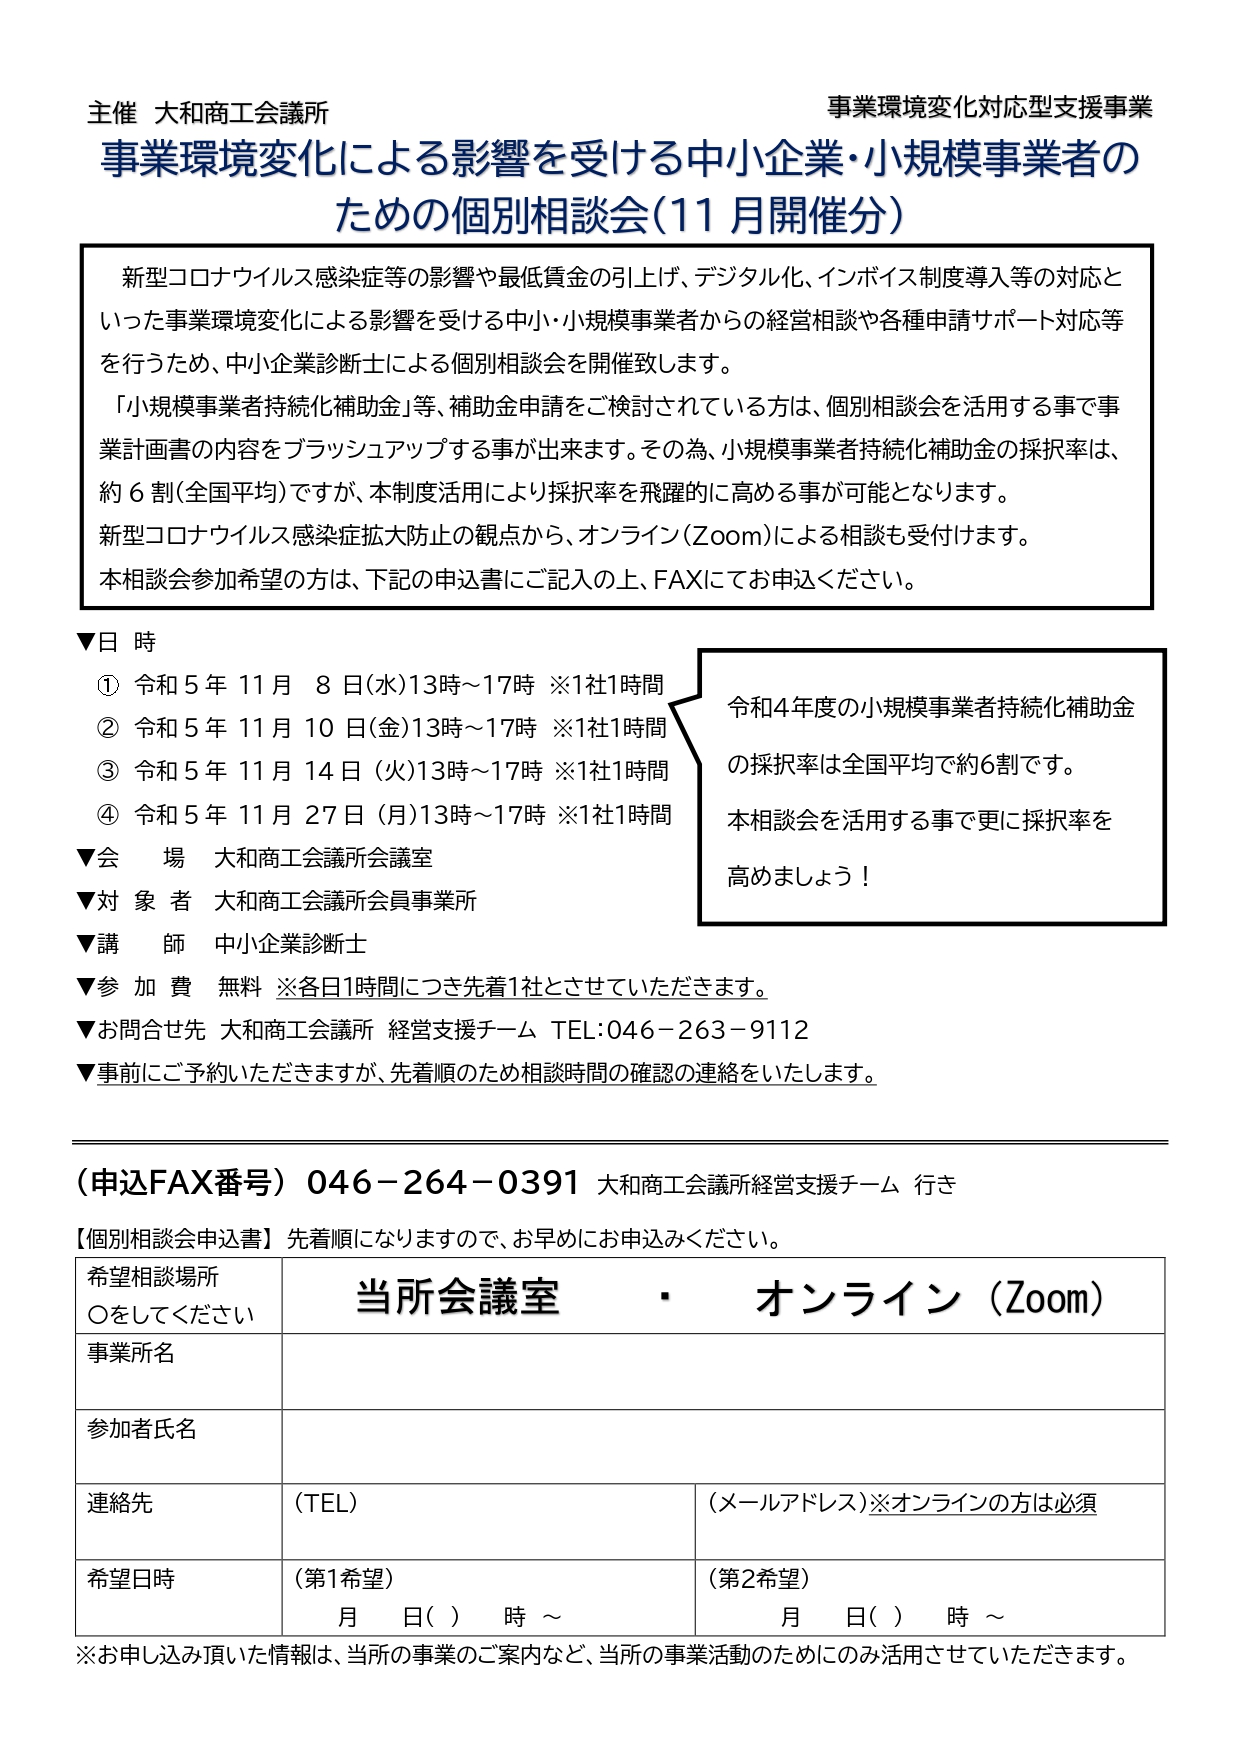 主催 大和商工会議所
事業環境変化対応型支援事業
事業環境変化による影響を受ける中小企業・小規模事業者の
ための個別相談会(11 月開催分)
新型コロナウイルス感染症等の影響や最低賃金の引上げ、デジタル化、インボイス制度導入等の対応と
いった事業環境変化による影響を受ける中小・小規模事業者からの経営相談や各種申請サポート対応等
を行うため、中小企業診断士による個別相談会を開催致します。
「小規模事業者持続化補助金」等、補助金申請をご検討されている方は、個別相談会を活用する事で事
業計画書の内容をブラッシュアップする事が出来ます。その為、小規模事業者持続化補助金の採択率は、
約 6 割(全国平均)ですが、本制度活用により採択率を飛躍的に高める事が可能となります。
新型コロナウイルス感染症拡大防止の観点から、オンライン(Zoom)による相談も受付けます。
本相談会参加希望の方は、下記の申込書にご記入の上、FAXにてお申込ください。
▼日 時
① 令和5年 11月 8日(水)13時～17時 ※1社1時間
② 令和5年 11月 10日(金)13時～17時 ※1社1時間
③ 令和5年 11月 14日(火)13時～17時 ※1社1時間
④ 令和5年 11月 27日(月)13時～17時 ※1社1時間
令和4年度の小規模事業者持続化補助金
の採択率は全国平均で約6割です。
本相談会を活用する事で更に採択率を
高めましょう！
▼会 場 大和商工会議所会議室
▼対 象 者 大和商工会議所会員事業所
▼講 師 中小企業診断士
▼参 加 費 無料 ※各日1時間につき先着1社とさせていただきます。
▼お問合せ先 大和商工会議所 経営支援チーム TEL:046－263－9112
▼事前にご予約いただきますが、先着順のため相談時間の確認の連絡をいたします。
(申込FAX番号) 046－264－0391 大和商工会議所経営支援チーム 行き
【個別相談会申込書】 先着順になりますので、お早めにお申込みください。
希望相談場所
〇をしてください
当所会議室 ・ オンライン（Zoom）
事業所名
参加者氏名
連絡先 (TEL) (メールアドレス)※オンラインの方は必須
希望日時 (第1希望) (第2希望)
月 日( ) 時 ～ 月 日( ) 時 ～
※お申し込み頂いた情報は、当所の事業のご案内など、当所の事業活動のためにのみ活用させていただきます。